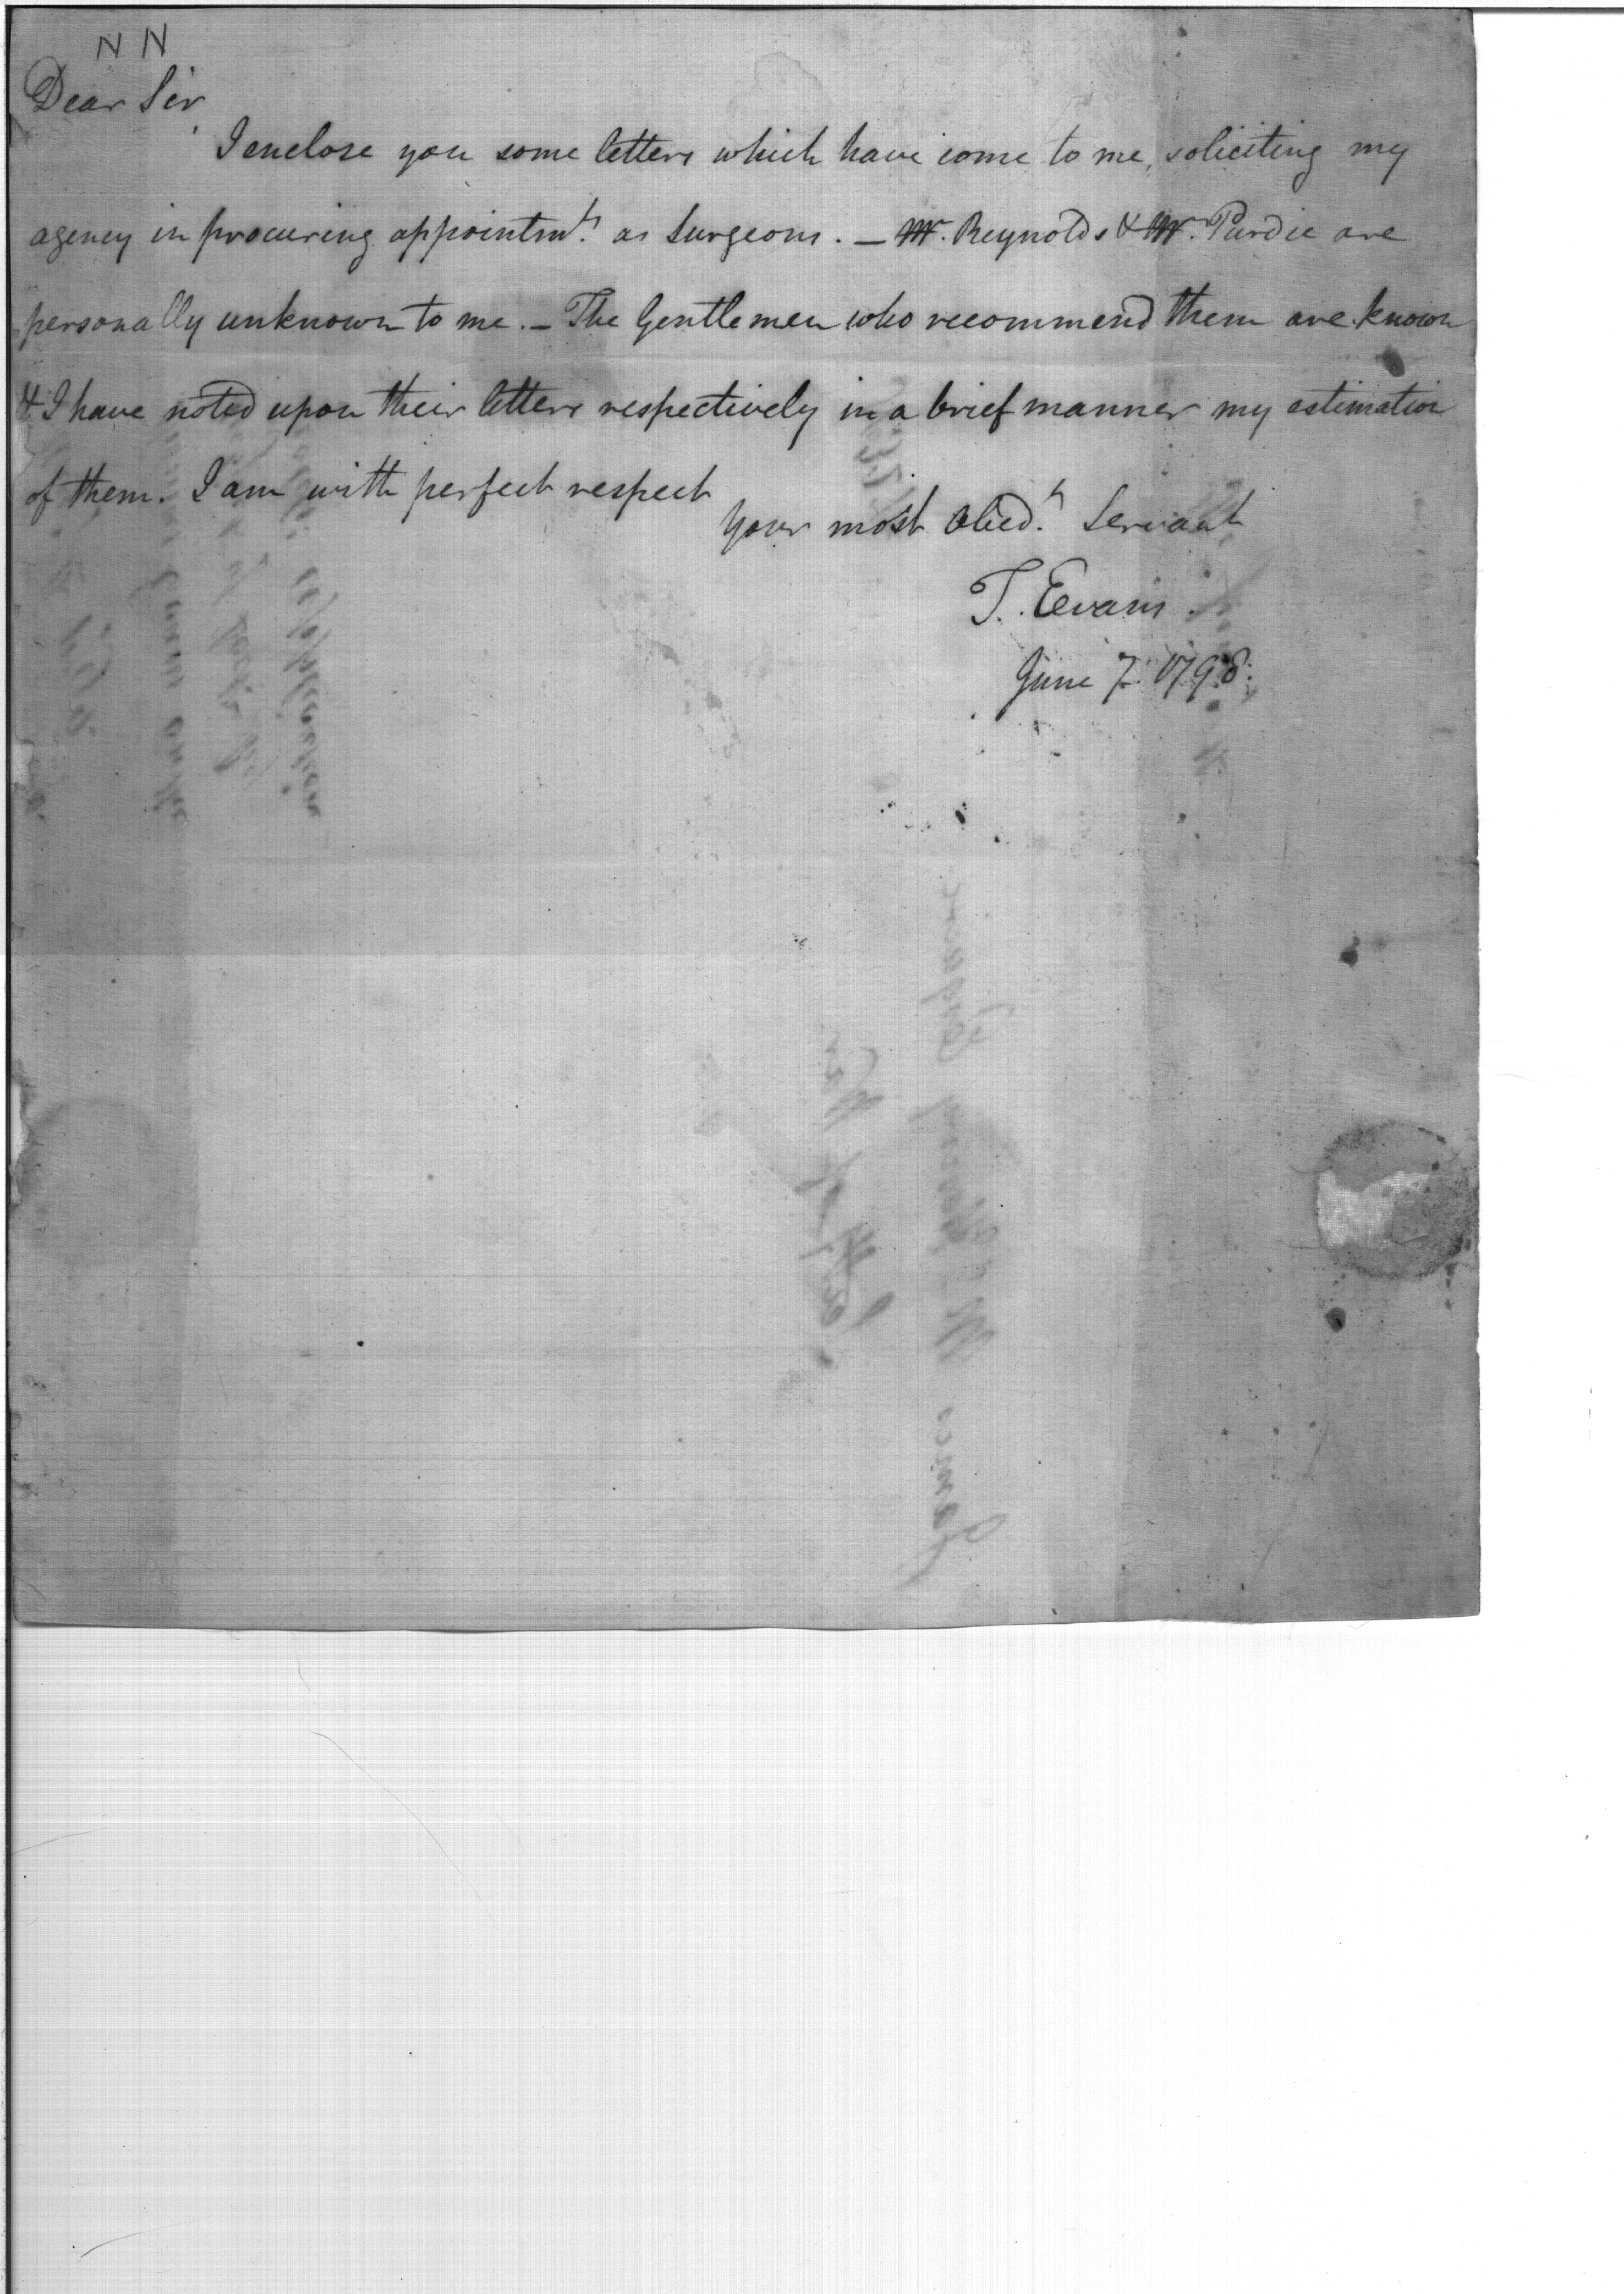 N N
Dear Sir
I enclose you some letters which have come to me, soliciting my
agency in procuring appointmts. as Surgeons. — Mr. Reynolds & Mr. Purdie are
personally unknown to me. — The Gentlemen who recommend them are known
& I have noted upon their letters respectively in a brief manner my estimation
of them. I am with perfect respect
your most obedt. Servant
T. Evans
June 7. 1798.
James McHenry Esquire